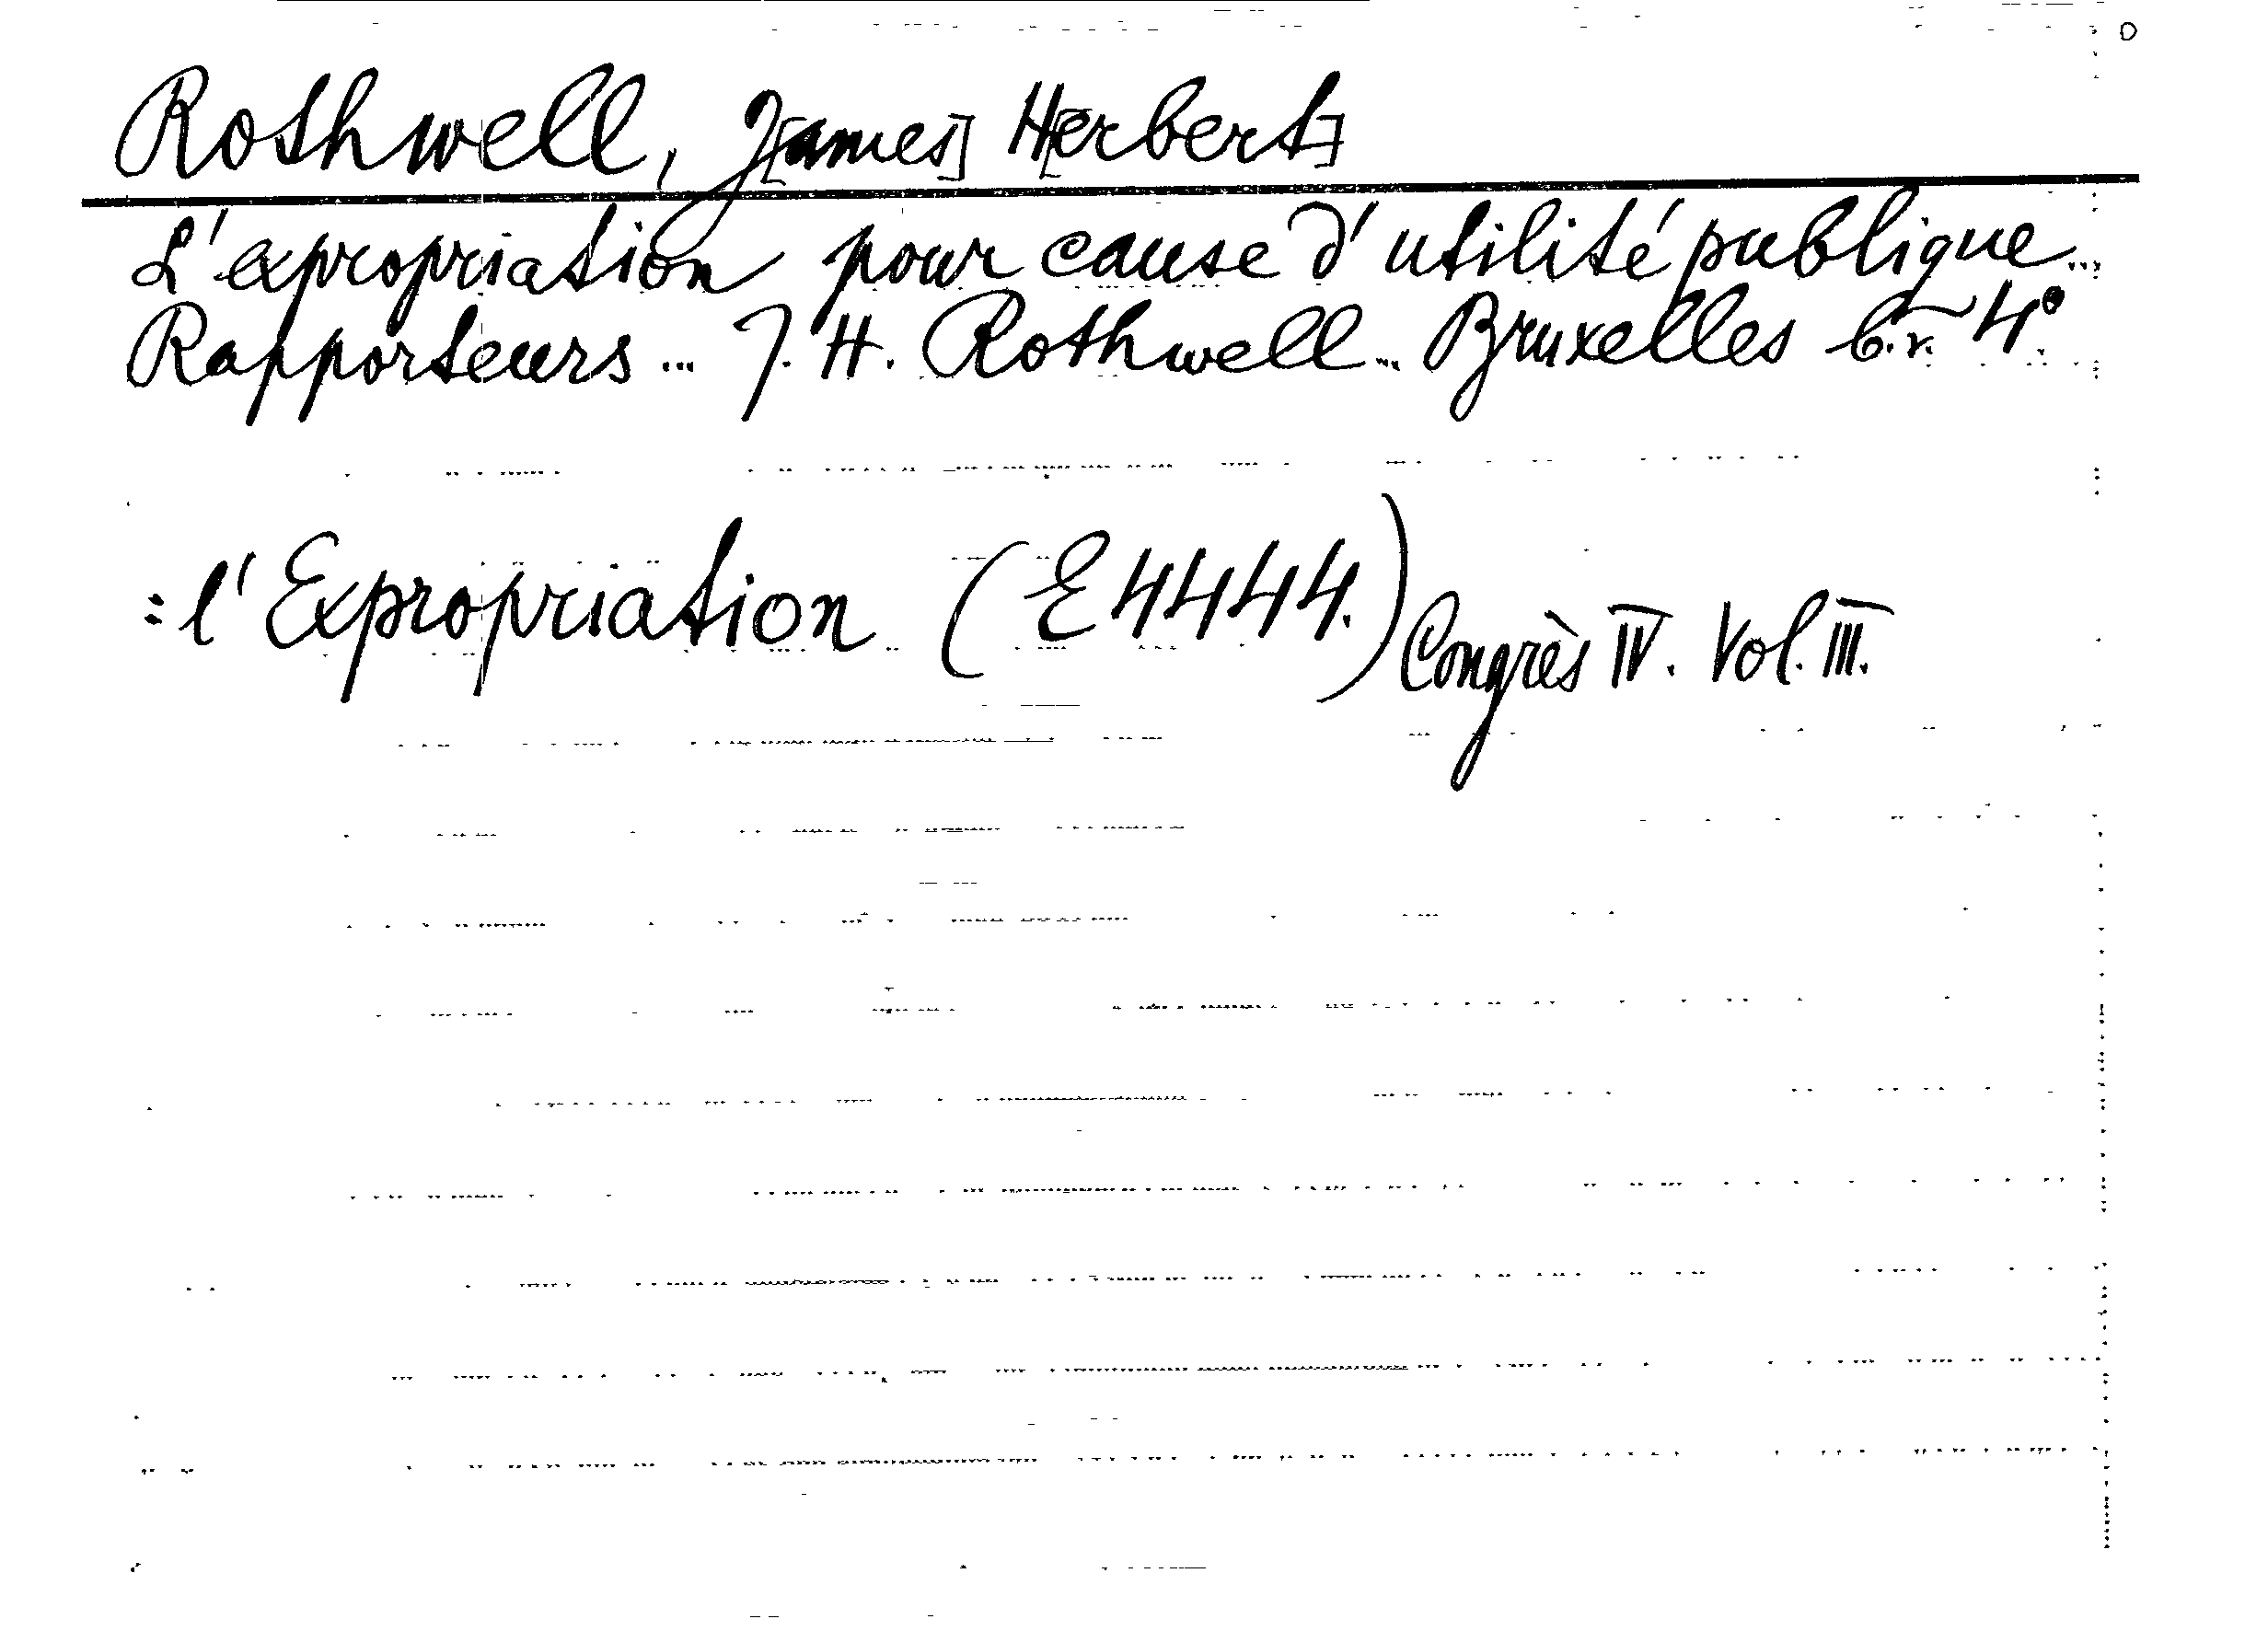 Rothwell, J[ames] H[erbert]
L'expropriation pour cause d'utilité publique...
Rapporteurs ... J. H. Rothwell... Bruxelles b.r. 4°
: l'Expropriation (E4444.) Congrès IV. Vol. III.